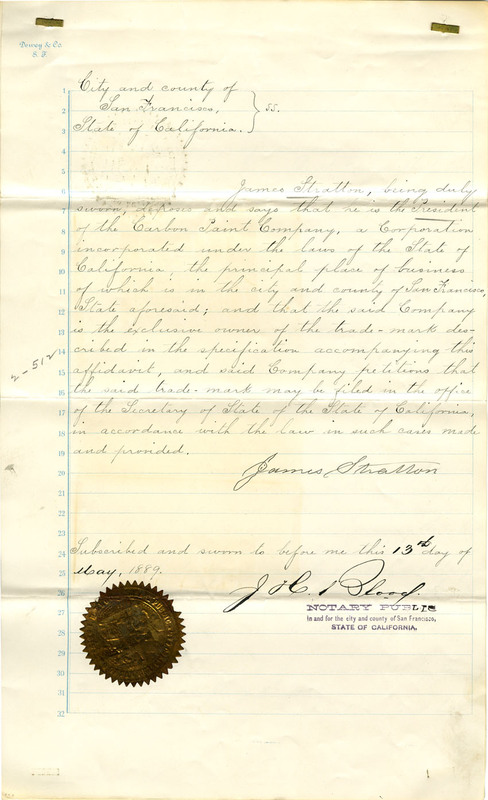 Dewey & Co.
S. F.
1 City and county of
2 San Francisco, } ss.
3 State of California.
4
5
6 James Stratton, being duly
7 sworn, deposes and says that he is the President
8 of the Carbon Paint Company, a Corporation
9 incorporated under the laws of the State of
10 California, the principal place of business
11 of which is in the city and county of San Francisco,
12 State aforesaid; and that the said Company
13 is the exclusive owner of the trade-mark des-
14 cribed in the specification accompanying this
15 affidavit, and said Company petitions that
16 the said trade-mark may be filed in the office
17 of the Secretary of State of the State of California,
18 in accordance with the law in such cases made
19 and provided.
20 James Stratton
21
22
23
24 Subscribed and sworn to before me this 13th day of
25 May, 1889.
26 J. H. Blood.
27 NOTARY PUBLIC
In and for the city and county of San Francisco,
28 STATE OF CALIFORNIA.
29
30
31
32
2-512